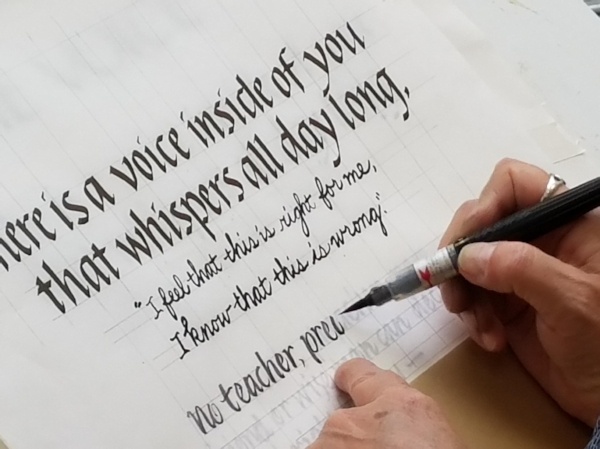 here is a voice inside of you
that whispers all day long,
"I feel that this is right for me,
I know that this is wrong."
no teacher, prea